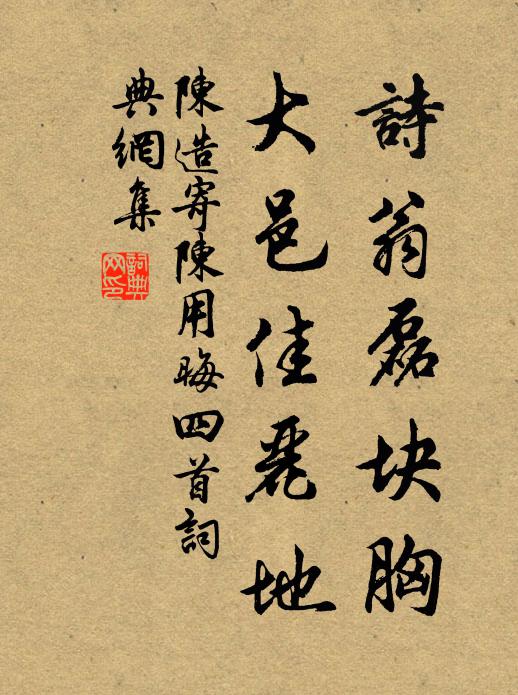 詩翁磊块胸
大邑佳麗地
陳造寄陳用晦四首詞
典網集
詞典網印